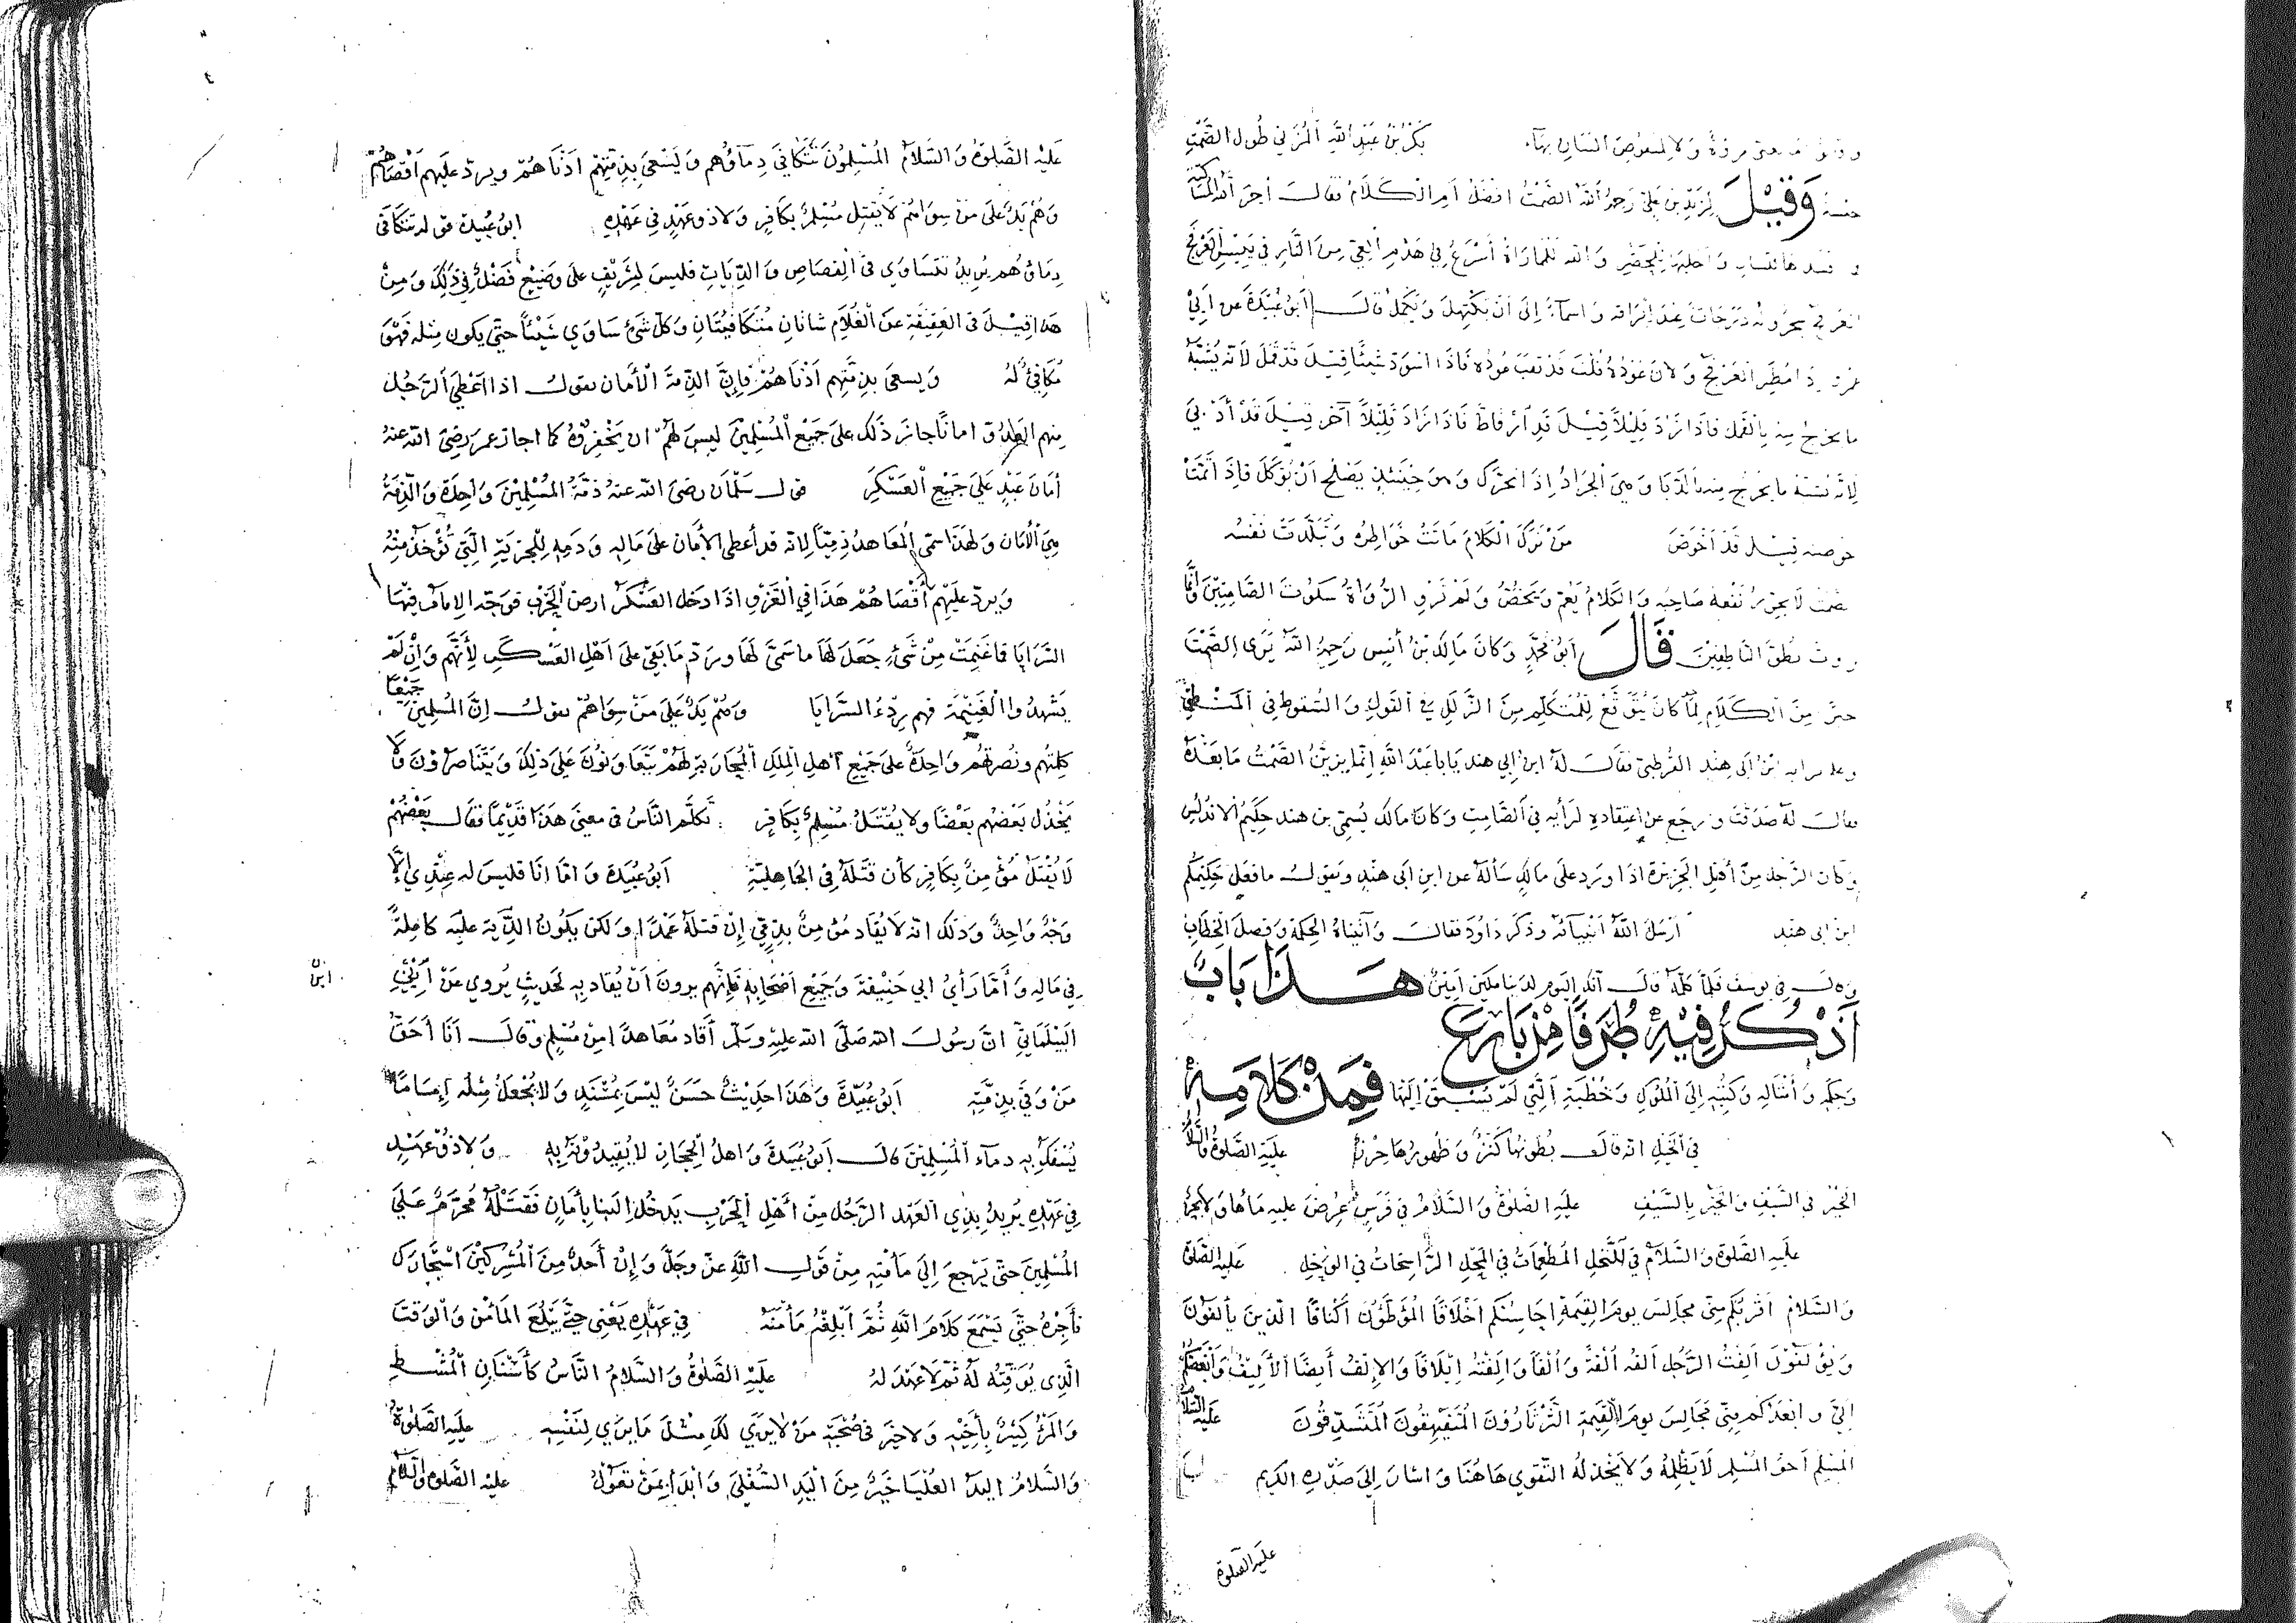 بَكْرُ بْنُ عَبْدِ اللَّهِ الْمُزَنِي طُول الصَّمْتِ
حبسة وَقِيْلَ لِزَيْدِ بْنِ عَلِيّ رَحِمَهُ اللَّهُ الصَّمْتُ افضَلُ أم الْكَلَامُ فقالَ أخزَ اللَّهُ المُسَاكتة
وَاللَّه لَلْمُمَارَاةُ أَسْرَعُ فِي هَدْمِ العِيّ مِنَ النَّارِ فِي يَبِيْسِ العَرْفَجِ
إلَى أنْ يَكْتَهِلَ وَيَكْمُلُ قَالَ أبوعُبَيْدَة عن أبِي
امْطِرَ العَرْفَج وَلَانَ عُوْدُهُ قُلْتَ قَدْ ثَقَبَ عُودُه فَاذَا اسْوَدَّ شَيْئًا قِيْلَ قَدْ قَمِلَ لأنّه يُشَبَّهُ
ما يخرج منه بِالقَمْل فَاذَا زَادَ قَلِيْلاً قِيْلَ قَدِ ارْقَاطَّ فَاذَا زَادَ قَلِيْلاً آخر قِيْلَ قَدْ أَدْبَى
لانّه يُشَبَّه ما يَخْرُج مِنه بالدَّبَا وَهِيَ الْجَرَادُ إذَا تحَرَّكَ وَهو حِيْنَئِذٍ يَصْلُح أنْ يُؤكَلَ فاذَا تَمَّتْ
خوصته قيل قَدْ أَخْوَصَ مَنْ تَرَكَ الْكَلَامَ مَاتَتْ خَوَاطِرُه وَتَبَلَّدَتْ نَفْسُه
نَفْعُهُ صَاحِبَه وَالْكَلامُ يَعُمّ وَيَخُصّ وَلَمْ تَرْوِ الرُّوَاةُ سُكُوْتَ الصَّامِتِيْنَ
نُطْقَ النَّاطِقِيْنَ قَالَ أبُو مُحَمَّدٍ وَكَانَ مَالِكُ بْنُ أنَسٍ رَحِمَهُ اللَّهُ يَرَى الصَّمْتَ
مِنَ الْكَلَامِ لِمَا كَانَ يَتَوَقَّعُ لِلْمُتَكَلِّمِ مِنَ الزَّلَلِ فِي الْقَوْلِ وَالسُّقُوطِ فِي الْمَنْطِقِ
ابْنُ أبي هِنْدٍ القُرْطُبِيّ فقالَ لَهُ ابن أبِي هند يَا باعَبْدَ اللَّهِ إنّما يزيّنُ الصَّمْتُ مَا بَعْدَهُ
فقالَ لَهُ صَدَقْتَ وَرَجَعَ عن اعتِقادِهِ لِرَأْيِهِ فِي الصَّامِتِ وَكَانَ مالك يُسَمِّي بن هند حَكِيْمُ الاندلس
وَكَانَ الرَّجُلُ مِنْ أَهْلِ الجَزِيْرَة اذَا وَرَدَ عَلَى مَالِكٍ سَألَهُ عن ابنِ أبي هِنْدٍ ويَقولُ ما فَعَلَ حَكِيمُكُم
ابن ابي هند أرْسَلَ اللَّهُ أنْبِيَائَه وذَكَر دَاوُد فقالَ وَآتَيْنَاهُ الحِكمة وَفَصْلَ الخِطَابِ
وقال في يوسف فَلَمَّا كَلَّمَهُ قَالَ انّكَ اليَوم لدَينَا مَكِيْنٌ أمِيْنٌ هَذَا بَابٌ
أَذْكُرُ فِيْهِ طُرَفًا مِنْ بَارِعِ
وَحِكَمِهِ وَأَمْثَالِهِ وَكُتُبِهِ إلَى المُلُوكِ وَخُطَبِهِ الَّتِي لَمْ يُسْبَقْ إلَيْهَا فَمِنْ كَلَامِهِ
في الخَيْلِ انّه قالَ بُطُونُهَا كَنْزٌ وَظُهُورُهَا حِرْزٌ عليهِ الصَّلوةُ وَالسَّلامُ
الخَيْرُ في السَّيْفِ وَالخَيْر بِالسَّيْفِ عليهِ الصَّلوةُ وَالسَّلَامُ في فَرَسٍ عُرِضَ عليه
عليه الصَّلوة وَالسَّلَامُ فِي النَّخلِ المُطْعِمَاتُ فِي المَحْلِ الرَّاسِخَاتُ في الوَحْلِ عليه الصَّلوة
وَالسَّلامُ أقْرَبُكُم مِنّي مجالِسَ يومَ القِيمَةِ أحَاسِنُكُم أخْلَاقًا المُوَطَّؤُنَ أكْنَافًا الَّذينَ يألَفُوْنَ
وَيُؤْلَفُوْنَ ألِفْتُ الرَّجُل آلفه ألْفَةً وَألْفًا وَالَفْتُه ايْلَافًا وَالإِلْفُ أيضًا الأَلِيْفُ وَأبْغَضُكُمْ
إلَيّ وَابْعَدُكم مِنّي مَجَالِسَ يومَ القِيمَةِ الثَّرْثَارُوْنَ المُتَفَيْهِقُونَ المُتَشَدِّقُونَ عليه السلام
المُسْلِم أخُو المُسْلِم لَا يَظْلِمُهُ وَلَا يَخْذلهُ التَّقوى هَاهُنَا وَاشَارَ إلى صَدْرِهِ الكَرِيم
عليه الصلوة
عَلَيْهِ الصَّلوةُ وَالسَّلَامُ المُسْلِمُوْنَ تَتَكَافَئ دِمَاؤُهم وَيَسْعَى بِذِمَّتِهِمْ أدْنَاهُمْ ويردّ عليهم أقْصَاهُمْ
وَهُمْ يَدٌ عَلَى مَنْ سِوَاهُمْ لَا يُقْتَل مُسْلِمٌ بِكَافِرٍ وَلاذوعَهْدٍ في عَهْدِهِ ابُو عُبَيْدة قوله تتكافَى
دِمَاؤُهُم يُرِيدُ تتَسَاوَى في القِصَاصِ وَالدِّيَاتِ فليسَ لِشَرِيْفٍ عَلَى وَضِيْعٍ فَضْلٌ في ذَلِكَ وَمِنْ
هَذَا قِيْلَ في العَقِيْقَةِ عن الْغُلَامِ شاتَانِ مُتَكَافِئَتَانِ وَكُلّ شَئ سَاوى شَيْئاً حَتَّى يكون مِثله فَهْوَ
مُكَافِئٌ لَهُ وَيسعى بذمّتِهم أدْنَاهُمْ فَإنَّ الذِّمةَ الأَمان يقولُ اذا أعْطَى الرَّجُلُ
مِنهم العَدُوَّ امانًا جاز ذَلك عَلى جَمِيْع المُسْلِمِيْنَ ليسَ لَهُمْ ان يُخْفِرُوْهُ كما اجاز عمر رَضِيَ اللَّه عنهُ
أمَانَ عَبْدٍ عَلَى جَمِيْعِ العَسْكَرِ قولُ سَلْمَان رضيَ اللَّه عنهُ ذِمَّةُ المُسْلِمِيْنَ وَاحِدَة وَالذِّمَّةُ
هِيَ الأَمَان وَلهَذَا سمّي المُعَاهدُ ذِمِّيًا لانّه قد أعطى الأَمان عَلَى مَالِهِ وَدَمِهِ لِلْجِزْيَةِ الَّتِي تُؤخَذُ مِنْهُ
وَيردّ عليْهِمْ أقْصَاهُمْ هَذَا فِي الْغَزْوِ اذَا دخل العَسْكَرُ ارضَ الْحَرْبِ فوَجّه الإِمَامُ مِنْهَا
السَّرَايَا فَما غَنِمَتْ مِنْ شَيْءٍ جَعَلَ لَهَا ما سَمَّى لَهَا ورَدّ مَا بَقِيَ عَلَى أهْلِ العَسْكَرِ لِأنَّهُم وَإنْ لَمْ
يَشْهَدُوا الْغَنِيْمَة فهم رِدْءُ السَّرَايَا وَهُمْ يَدٌ عَلَى مَنْ سِوَاهُمْ يقولُ إنَّ المُسْلِمِيْنَ جَمِيْعًا
كلِمَتُهم ونُصْرَتُهُم وَاحِدَةٌ عَلَى جَمِيْعِ أهْلِ المِلَلِ المُحَارِبَةِ لَهُمْ يَتَعَاوَنُوْنَ عَلَى ذلِكَ وَيَتَنَاصَرُوْنَ وَلَا
يَخْذُل بَعْضُهُم بَعْضًا وَلا يُقْتَلُ مُسْلِمٌ بِكَافِرٍ تَكَلَّمَ النَّاسُ في معنَى هَذَا قَدِيْمًا فقالَ بَعْضُهُمْ
لَا يُقْتَلُ مُؤْمِنٌ بِكَافِرٍ كان قَتَلَهُ في الجَاهِلِيَّةِ أبُو عُبَيْدَة وَامَّا أنَا فَليسَ له عِنْدِي إلَّا
وَجْهٌ وَاحِدٌ وَذَلِكَ انّه لَا يُقَاد مُؤْمِنٌ بِذِمِّيّ إِنْ قَتَلَهُ عَمْدًا وَلكن يَكُونُ الدِّيَة عليهِ كامِلةً
فِي مَالِهِ وَأمَّا رَأيُ ابي حَنِيْفَة وَجَمِيْعِ أصْحَابِهِ فَإنَّهم يرون أنْ يُقاد بِهِ لحَديثٍ يُروى عَنْ ابْنِ
ابن
البَيْلَمَانِيّ انَّ رسُولَ اللَّه صَلَّى اللَّه عليهِ وسَلّم أقَاد مُعَاهدًا مِنْ مُسْلِمٍ وقَالَ أنَا أحَقُّ
مَنْ وَفَى بِذِمَّتِهِ أبُو عُبَيْدَةَ وَهَذَا حَدِيْثٌ حَسَنٌ ليْسَ بِمُسْنَدٍ وَلا يُجْعَلُ مِثْلُه إمَامًا
يُسْفَكُ بِهِ دماء المُسْلِمِيْنَ قالَ أبُو عُبَيْدَةَ وَاهلُ الْحِجَازِ لا يُقِيْدُوْنَهُ بِهِ وَلاذُوْ عَهْدٍ
فِي عَهْدِهِ يُرِيدُ بِذِي العَهْد الرَّجُلَ مِنْ أهْلِ الْحَرْبِ يَدخُل إلَينا بِأمَانٍ فَقَتْلُهُ مُحَرَّمٌ عَلَى
المُسْلِمِيْنَ حَتّى يَرْجِعَ إلَى مَأمَنِهِ مِنْ قَوْلِ اللَّهِ عزّ وَجَلَّ وَإنْ أَحَدٌ مِنَ المُشْرِكِيْنَ اسْتَجَارَكَ
فَأجِرْهُ حَتَّى يَسْمَعَ كَلَامَ اللَّهِ ثُمَّ أبْلِغْهُ مَأمَنَهُ فِي عَهْدِهِ يَعْنِي حَتَّى يَبْلُغَ المَأمَن وَالْوَقْتَ
الَّذِي يُوَقِّتُه لَهُ ثُمَّ لَا عَهْدَ لهُ عَليهِ الصَّلوةُ وَالسَّلامُ النَّاسُ كَأسْنَانِ المُشْطِ
وَالمَرْءُ كَثِيْرٌ بِأخِيْهِ وَلاخيْرَ في صُحْبَةِ مَنْ لا يَرَى لَكَ مِثْلَ مَا يرَى لِنَفْسِهِ عليهِ الصَّلوةُ
وَالسَّلامُ اليَدُ العُلْيَا خَيْرٌ مِنَ الْيَدِ السُّفْلَى وَابْدَأْ بِمَنْ تعُوْلُ عليْهِ الصَّلوة وَالسَّلَامُ